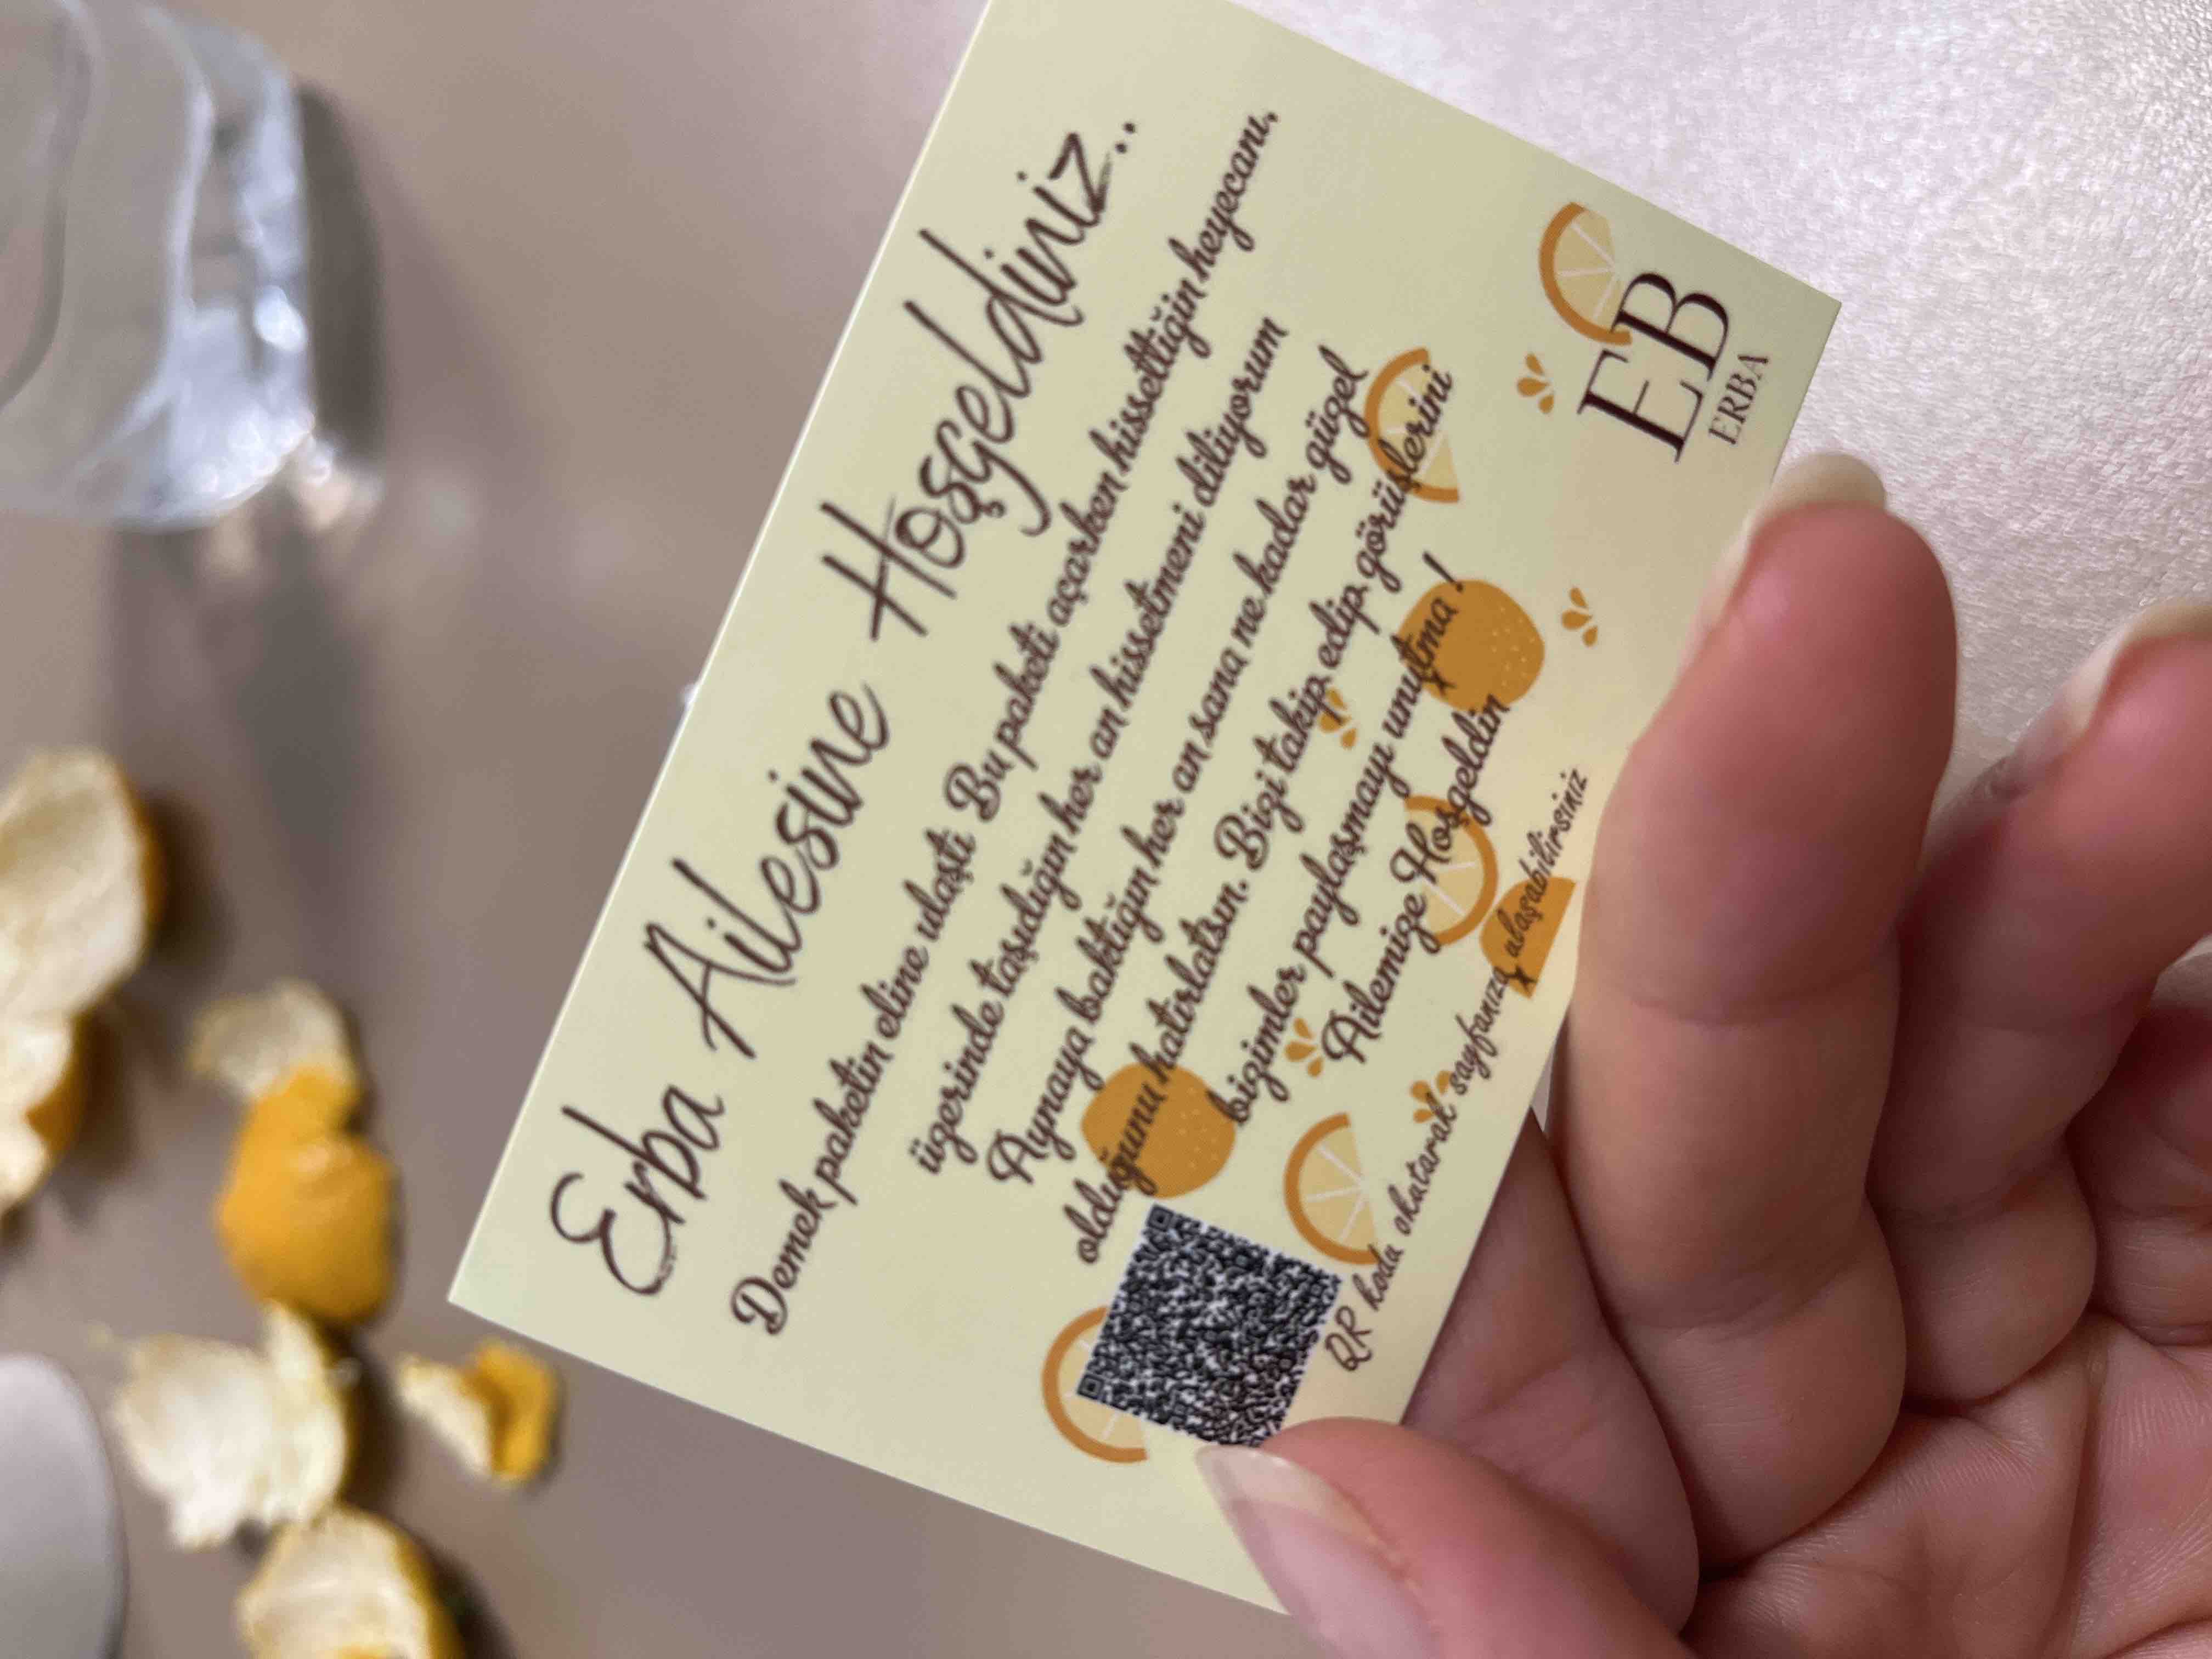 Erba Ailesine Hoşgeldiniz..
Demek paketin eline ulaştı Bu paketi açarken hissettiğin heyecanı,
üzerinde taşıdığın her an hissetmeni diliyorum
Aynaya baktığın her an sana ne kadar güzel
olduğunu hatırlatsın. Bizi takip edip görüşlerini
bizimler paylaşmayı unutma!
Ailemize Hoşgeldin
QR kodu okutarak sayfanıza ulaşabilirsiniz
EB
ERBA